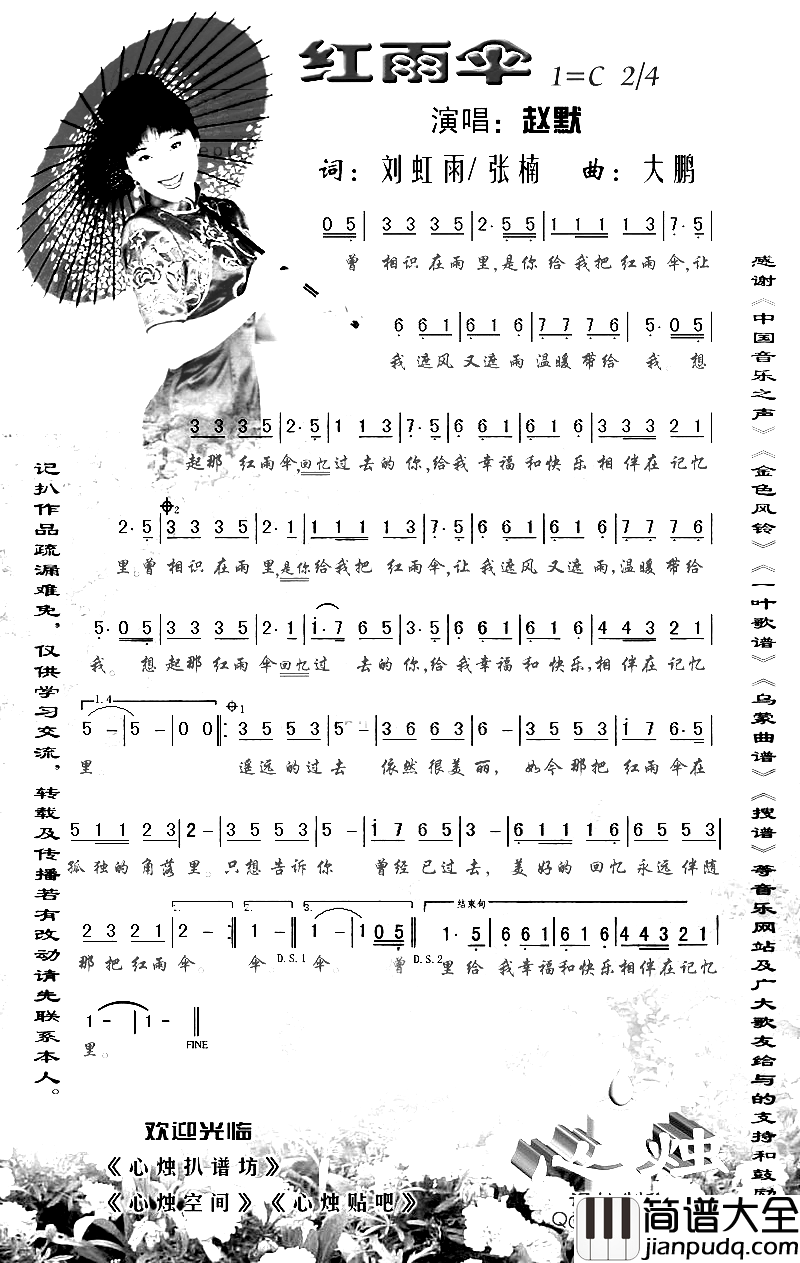 红雨伞 1=C 2/4
演唱：赵默
词：刘虹雨/张楠 曲：大鹏
0 5 | 3 3 3 5 | 2· 5 5 | 1 1 1 1 1 3 | 7· 5 |
曾 相识在雨里,是你给我把红雨伞,让
6 6 1 | 6 1 6 | 7 7 7 6 | 5· 0 5 |
我遮风又遮雨温暖带给 我 想
3 3 3 5 | 2· 5 | 1 1 3 | 7· 5 | 6 6 1 | 6 1 6 | 3 3 3 2 1 |
起那红雨伞,回忆过去的你,给我幸福和快乐相伴在记忆
2· 5 | 3 3 3 5 | 2· 1 | 1 1 1 1 3 | 7· 5 | 6 6 1 | 6 1 6 | 7 7 7 6 |
里曾相识在雨里,是你给我把红雨伞,让我遮风又遮雨,温暖带给
5· 0 5 | 3 3 3 5 | 2· 1 | i· 7 6 5 | 3· 5 | 6 6 1 | 6 1 6 | 4 4 3 2 1 |
我。想起那红雨伞回忆过去的你,给我幸福和快乐,相伴在记忆
1.4
5 - | 5 - | 0 0 :| 3 5 5 3 | 5 - | 3 6 6 3 | 6 - | 3 5 5 3 | i 7 | 6· 5 |
里 遥远的过去 依然很美丽, 如今那把红雨伞在
5 1 1 2 3 | 2 - | 3 5 5 3 | 5 - | i 7 6 5 | 3 - | 6 1 1 1 6 | 5 6 5 3 |
孤独的角落里。只想告诉你 曾经已过去,美好的回忆永远伴随
1. 2. 3. 结束句
2 3 2 1 | 2 - :| 1 - :| 1 - | 1 0 5 :| 1· 5 | 6 6 1 | 6 1 6 | 4 4 3 2 1 |
那把红雨伞。 伞 D.S.1 伞 曾 D.S.2 里给我幸福和快乐相伴在记忆
1 - | 1 - ‖
里。 FINE
记扒作品疏漏难免，仅供学习交流，转载及传播若有改动请先联系本人。
感谢《中国音乐之声》《金色风铃》《一叶歌谱》《乌蒙曲谱》《搜谱》等音乐网站及广大歌友给与的支持和鼓励
欢迎光临
《心烛扒谱坊》
《心烛空间》《心烛贴吧》
心烛
简谱大全
jianpudq.com